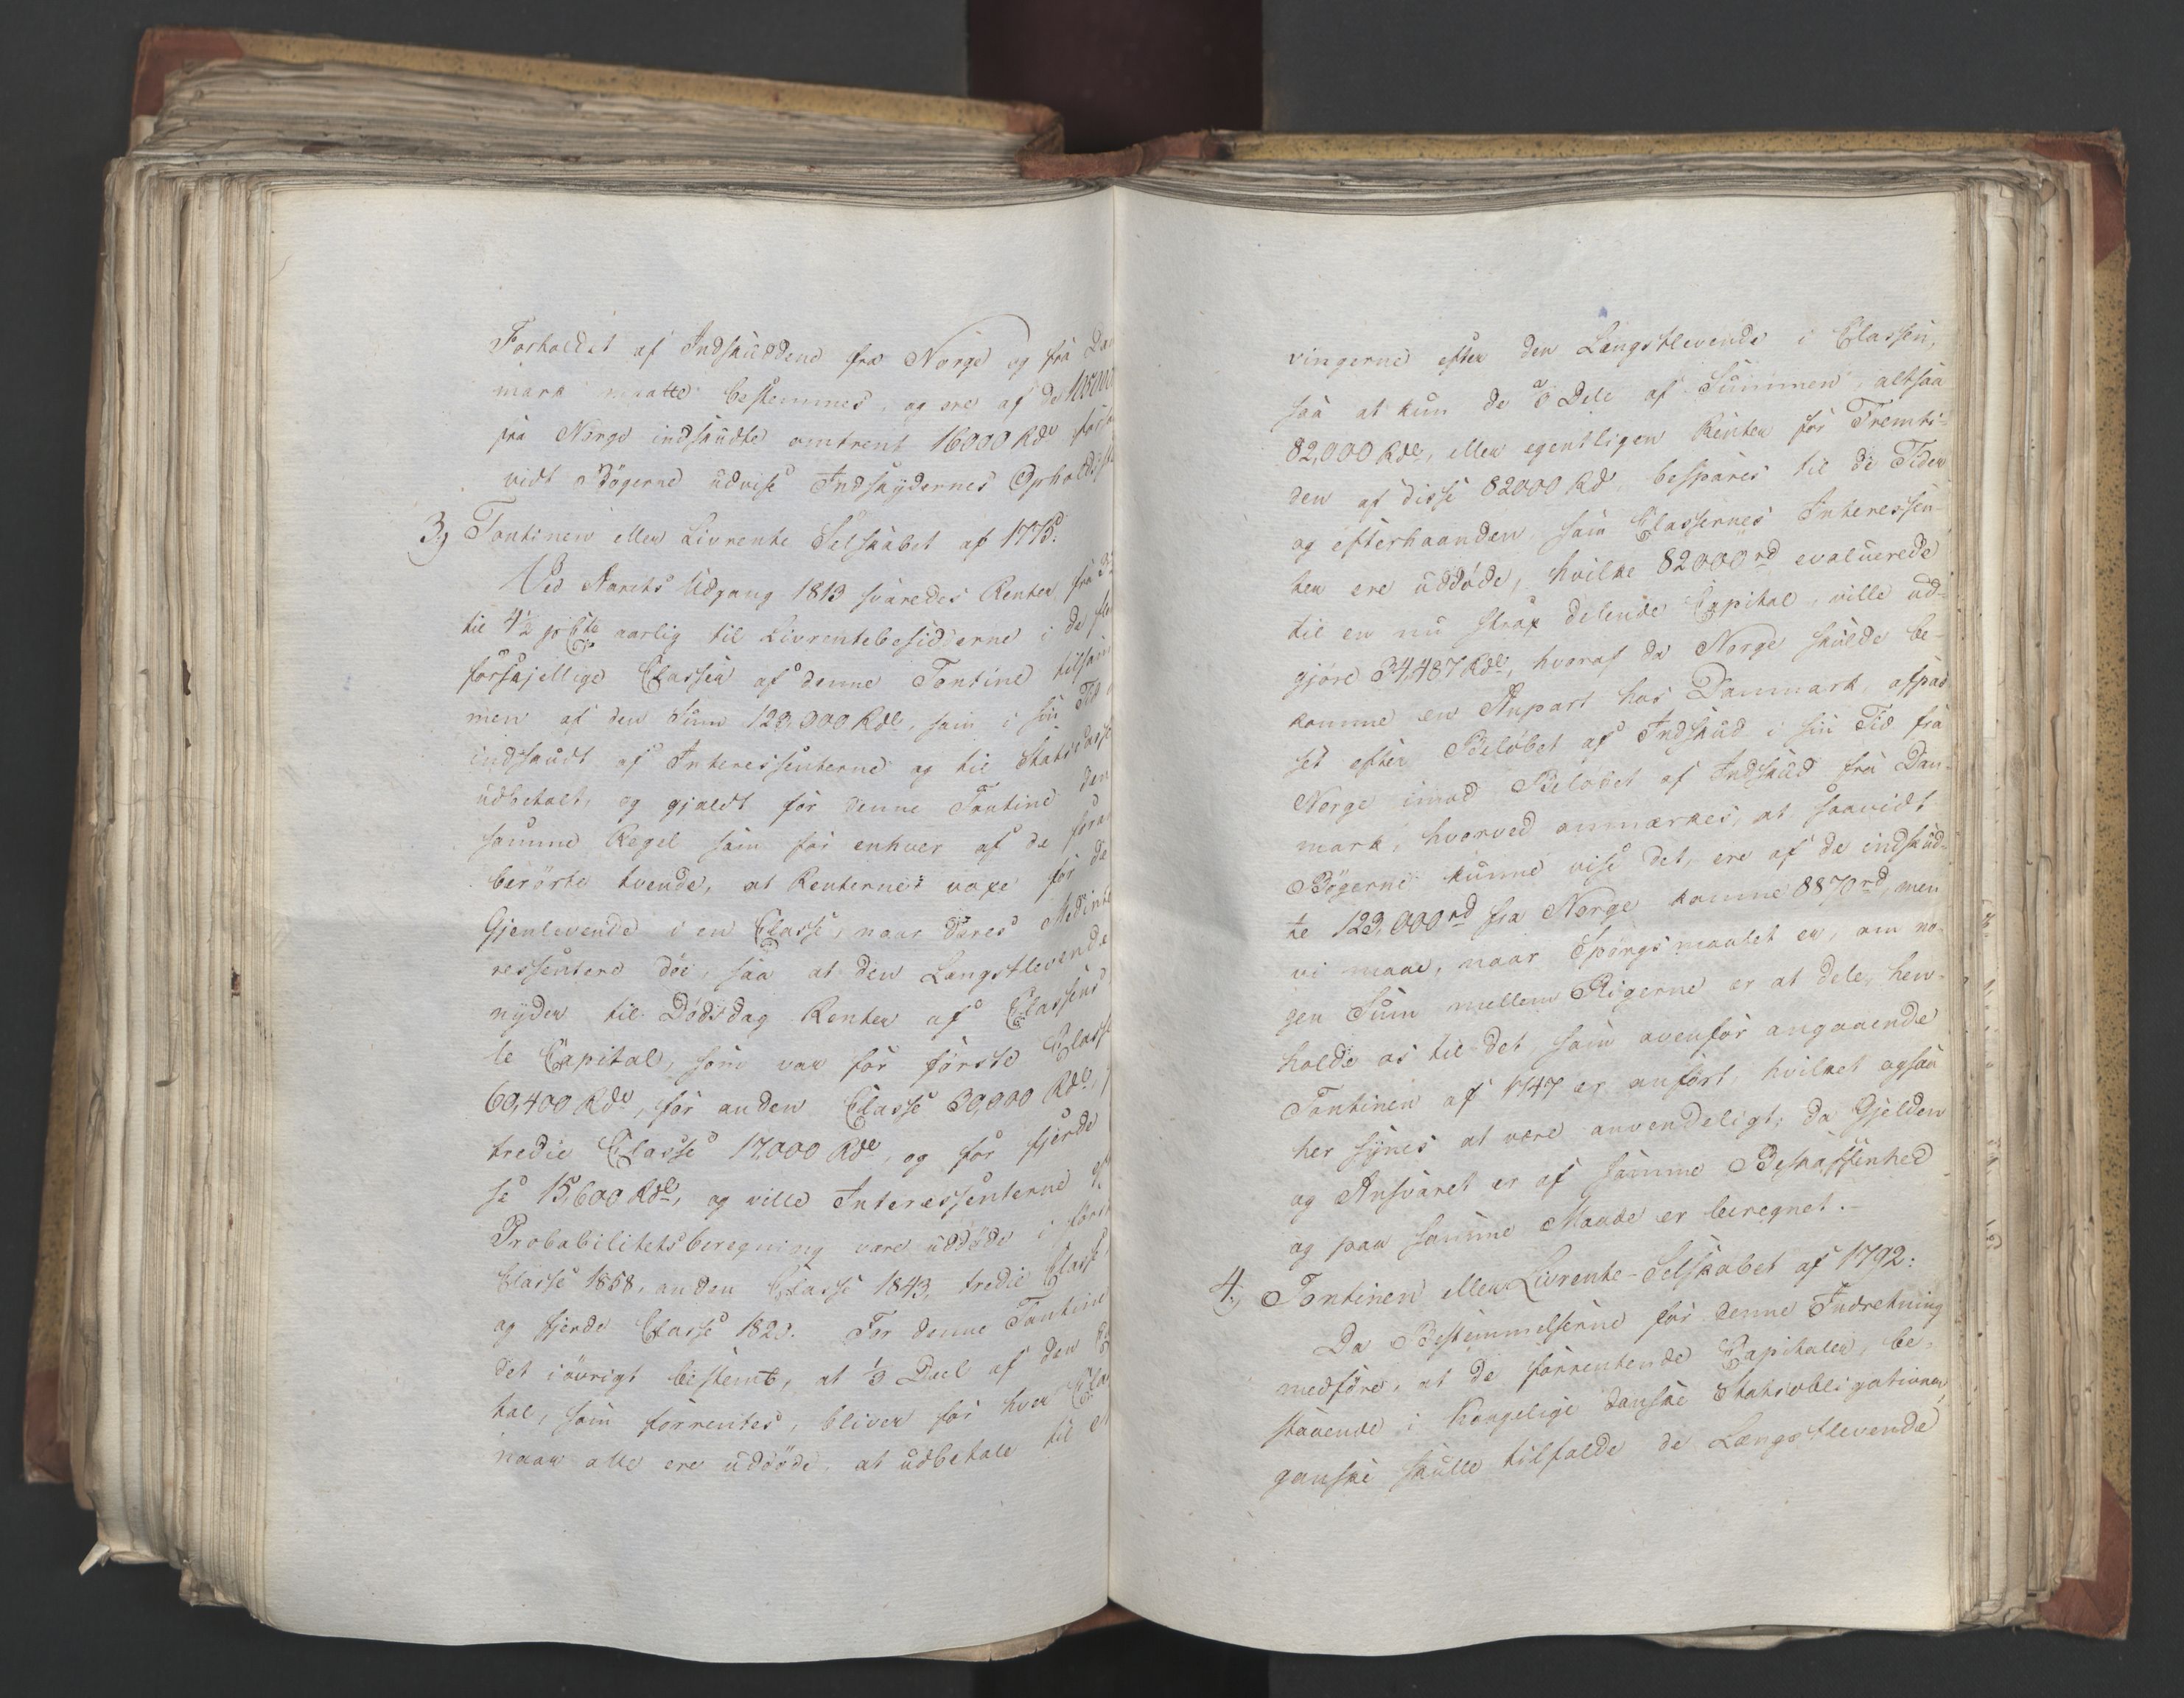 Forholdet af Indskuddene fra Norge og fra Dan
mark maatte bestemmes, og ere af de
fra Norge indskudte omtrent 16000 Rdl forsaa
vidt Bögerne udvise Indskydernes Opholdsste
3, Tontinen eller Livrente Selskabet af 1775.
Ved Aarets Udgang 1813 svaredes Renter fra 3
til 4½ pCto aarlig til Livrentebesidderne i de
forskjellige Classer af denne Tontine tilsam
men af den Sum 123,000 Rdl, som i sin Tid
indskudt af Interessenterne og til Statscasse
udbetalt, og gjaldt for denne Tontine den
samme Regel som for enhver af de foran
berörte tvende, at Renterne voxe for de
Gjenlevende i en Classe, naar deres Medinte
ressentere döe, saa at den Længstlevende
nyder til Dödsdag Renter af Classens
le Capital, som var for förste Classe
60,400 Rdl, for anden Classe 30,000 Rdl,
tredie Classe 17,000 Rdl, og for fjerde
se 15,600 Rdl, og ville Interessenterne
Probabilitetsberegning være uddöde i först
Classe 1858, anden Classe 1843, tredie Classe
og fjerde Classe 1823. For denne Tontine
det iövrigt bestemt, at ⅓ Deel af den
tal, som forrentes, bliver for hver Cla
naar alle ere uddöde, at udbetale til
vingerne efter den Længstlevende i Classen,
saa at kun de ⅔ Dele af Summen, altsaa
82,000 Rdl, eller egentligen Renter for Fremti-
den af disse 82000 Rd, bespares til de Tider
og efterhaanden som Classernes Interessen-
ter ere uddöde, hvilke 82000 rd evaluerede
til en nu strax delende Capital, ville ud-
gjöre 34,487 Rdl, hvoraf da Norge skulde be-
komme en Anpart hos Danmark, afpas
set efter Belöbet af Indskud i sin Tid fra
Norge imod Belöbet af Indskud fra Dan-
mark, hvorved anmærkes, at saavidt
Bögerne kunne vise det, ere af de indskud-
te 123,000 rd fra Norge komne 8870 rd, men
vi maae, naar Spörgsmaalet er, om no-
gen Sum mellem Rigerne er at dele, hen-
holde os til det som ovenfor angaaende
Tontinen af 1747 er anfört, hvilket ogsaa
her synes at være anvendeligt, da Gjelden
og Ansvaret er af samme Beskaffenhed
og paa samme Maade er beregnet.-
4, Tontinen eller Livrente-Selskabet af 1792:
Da Bestemmelserne for denne Indretning
medföre, at de forrentende Capitaler, be-
staaende i Kongelige danske Statsobligationer,
ganske skulle tilfalde de Længstlevende